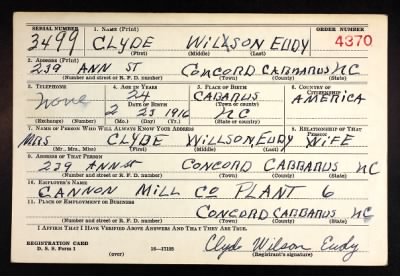 SERIAL NUMBER 1. NAME (Print) ORDER NUMBER
3499 CLYDE WILLSON EUDY 4370
(First) (Middle) (Last)
2. ADDRESS (Print)
239 ANN ST CONCORD CABBARUS NC
(Number and street or R. F. D. number) (Town) (County) (State)
3. TELEPHONE 4. AGE IN YEARS 5. PLACE OF BIRTH 6. COUNTRY OF CITIZENSHIP
None 24 CABARUS AMERICA
DATE OF BIRTH (Town or county)
2 23 1916 NC
(Exchange) (Number) (Mo.) (Day) (Yr.) (State or country)
7. NAME OF PERSON WHO WILL ALWAYS KNOW YOUR ADDRESS 8. RELATIONSHIP OF THAT PERSON
MRS CLYDE WILLSON EUDY WIFE
(Mr., Mrs., Miss) (First) (Middle) (Last)
9. ADDRESS OF THAT PERSON
239 ANN St CONCORD CABBARUS NC
(Number and street or R. F. D. number) (Town) (County) (State)
10. EMPLOYER'S NAME
CANNON MILL CO PLANT 6
11. PLACE OF EMPLOYMENT OR BUSINESS
CONCORD CABBARUS NC
(Number and street or R. F. D. number) (Town) (County) (State)
I AFFIRM THAT I HAVE VERIFIED ABOVE ANSWERS AND THAT THEY ARE TRUE.
REGISTRATION CARD Clyde Wilson Eudy
D. S. S. Form 1 (over) 16—17105 (Registrant's signature)